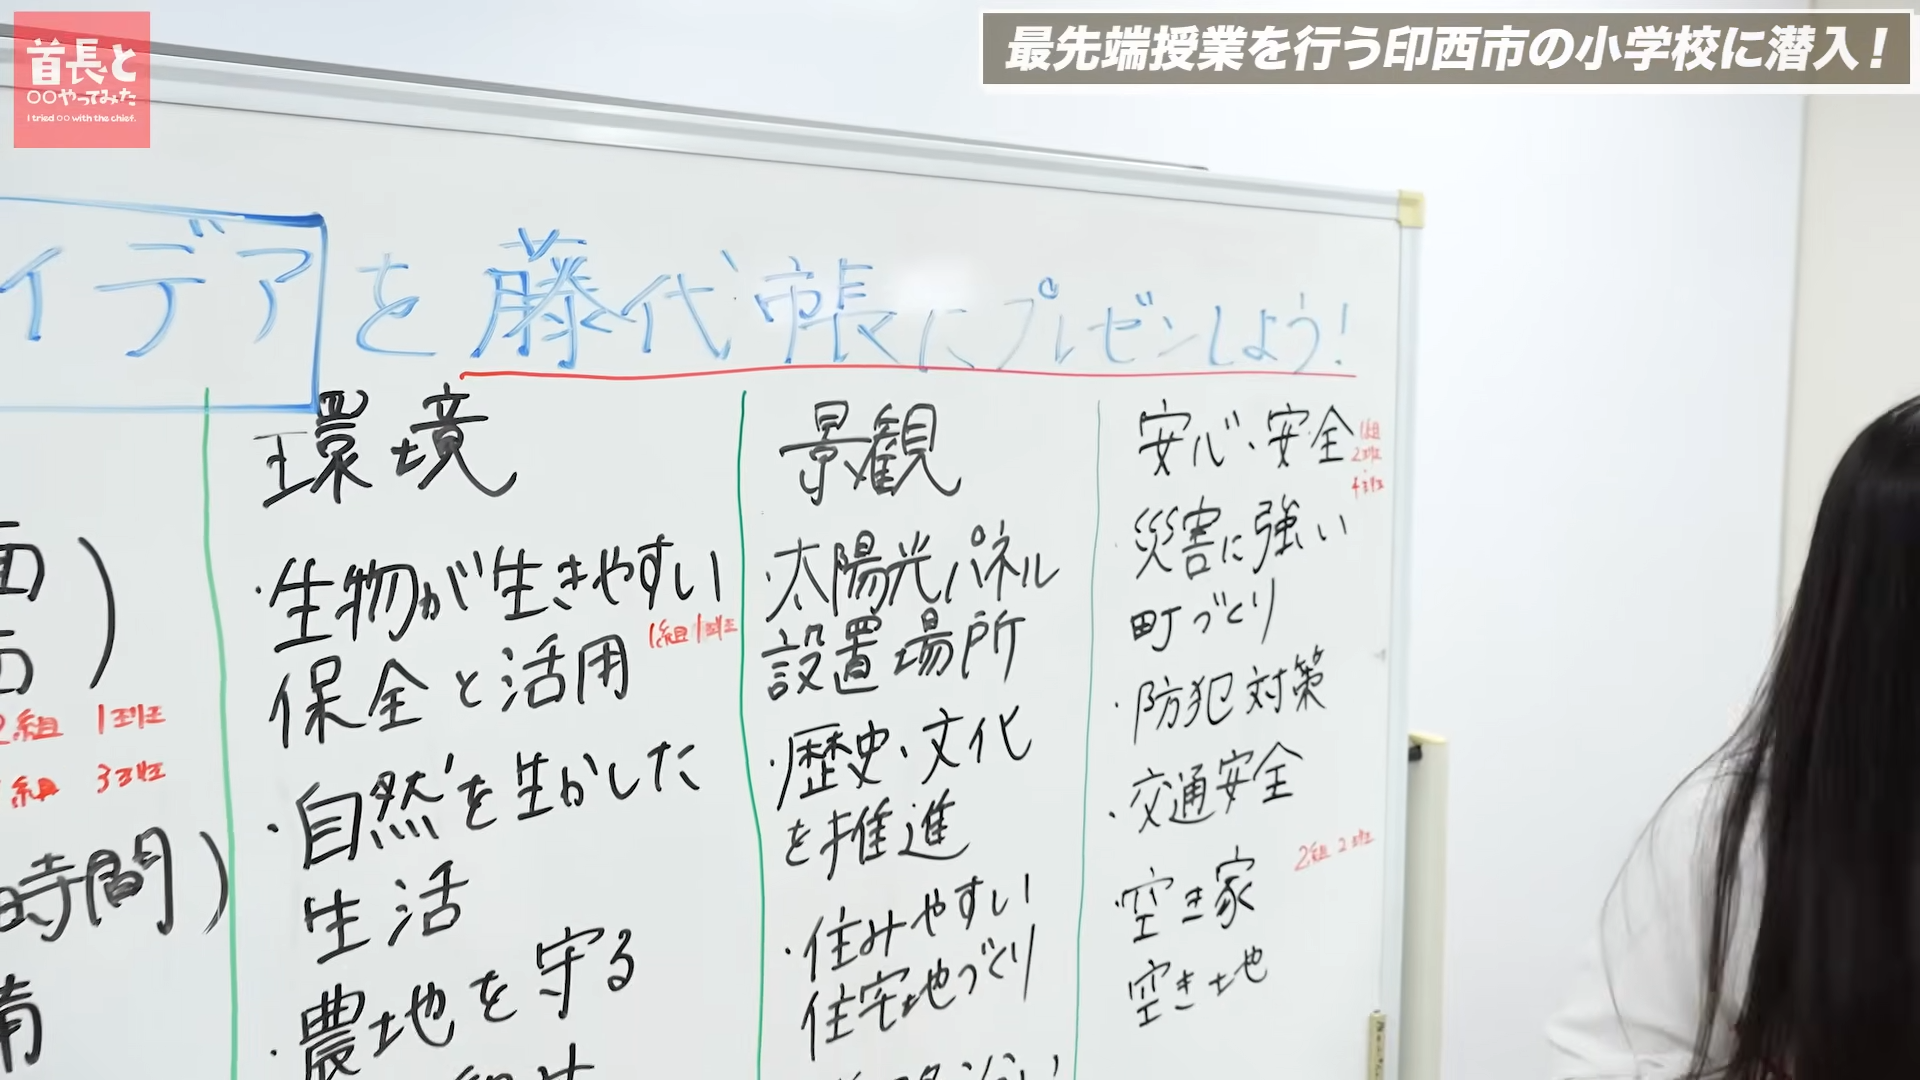 首長と
○○やってみた
I tried ○○ with the chief.
最先端授業を行う印西市の小学校に潜入！
イデアを藤代帳にプレゼンしよう!
2組 1班
組 3班
時間)
環境
・生物が生きやすい
保全と活用
1組1班
・自然を生かした
生活
・農地を守る
景観
・太陽光パネル
設置場所
・歴史・文化
を推進
・住みやすい
住宅地づくり
安心・安全
1組
2班
4班
・災害に強い
町づくり
・防犯対策
・交通安全
2組2班
・空き家
空き地